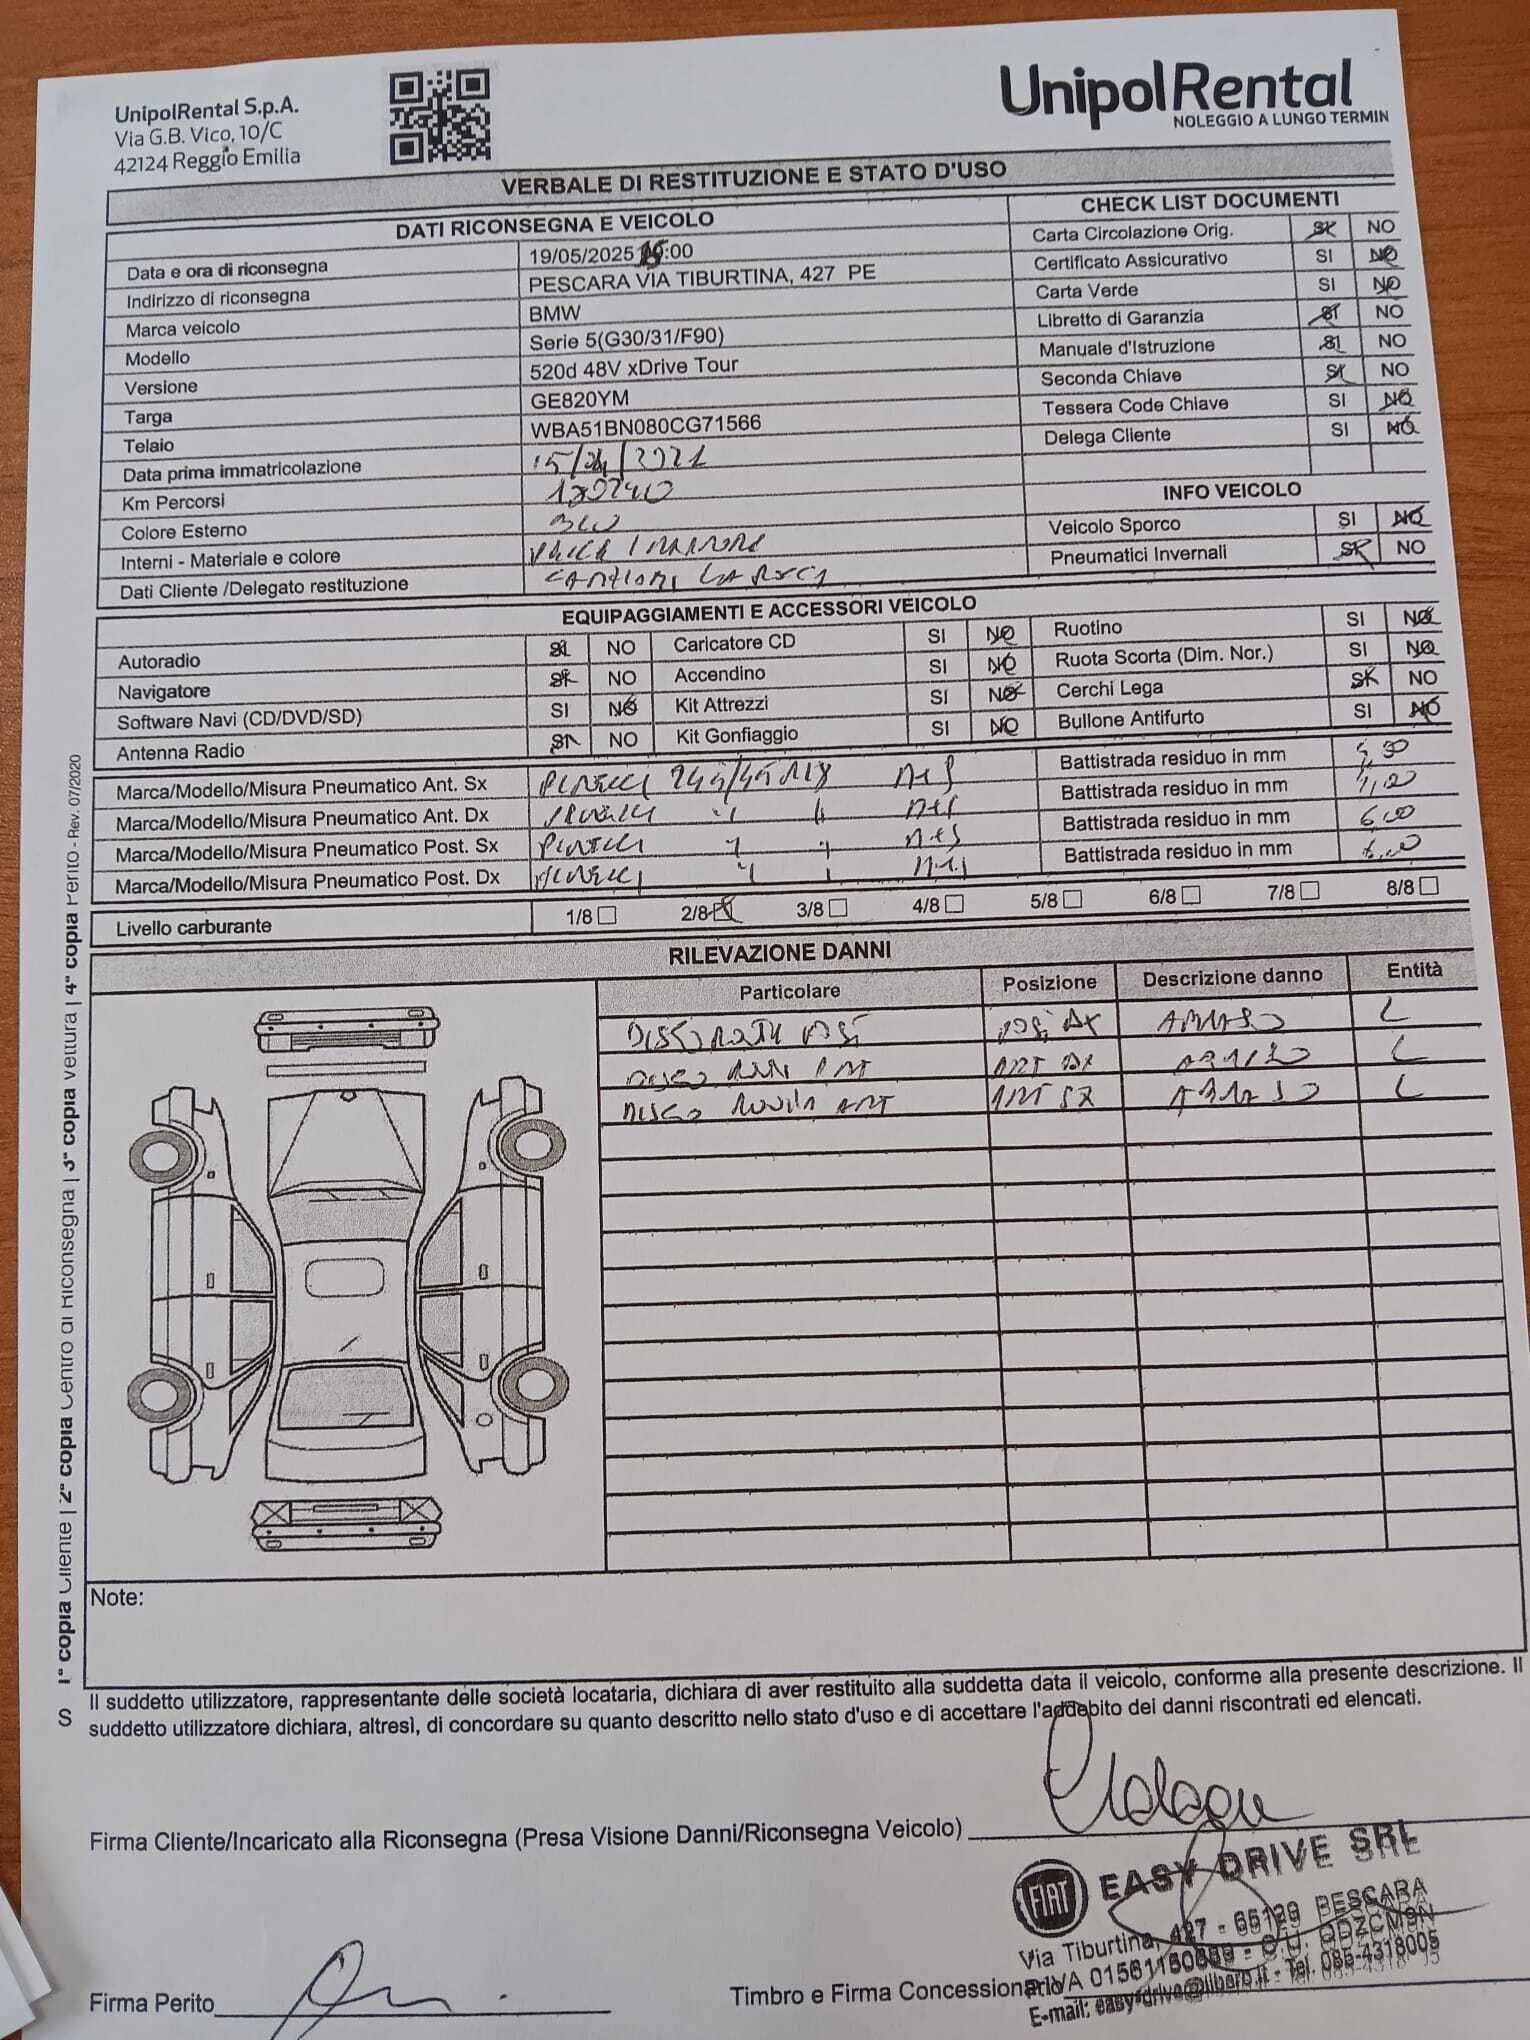 UnipolRental S.p.A.
Via G.B. Vico, 10/C
42124 Reggio Emilia
UnipolRental
NOLEGGIO A LUNGO TERMIN
VERBALE DI RESTITUZIONE E STATO D'USO
DATI RICONSEGNA E VEICOLO
Data e ora di riconsegna 19/05/2025 15:00
Indirizzo di riconsegna PESCARA VIA TIBURTINA, 427 PE
Marca veicolo BMW
Modello Serie 5(G30/31/F90)
Versione 520d 48V xDrive Tour
Targa GE820YM
Telaio WBA51BN080CG71566
Data prima immatricolazione 15/04/2021
Km Percorsi
Colore Esterno BLU
Interni - Materiale e colore PELLE MARRONE
Dati Cliente /Delegato restituzione
CHECK LIST DOCUMENTI
Carta Circolazione Orig. SI NO
Certificato Assicurativo SI NO
Carta Verde SI NO
Libretto di Garanzia SI NO
Manuale d'Istruzione SI NO
Seconda Chiave SI NO
Tessera Code Chiave SI NO
Delega Cliente SI NO
INFO VEICOLO
Veicolo Sporco SI NO
Pneumatici Invernali SI NO
EQUIPAGGIAMENTI E ACCESSORI VEICOLO
Autoradio SI NO Caricatore CD SI NO Ruotino SI NO
Navigatore SI NO Accendino SI NO Ruota Scorta (Dim. Nor.) SI NO
Software Navi (CD/DVD/SD) SI NO Kit Attrezzi SI NO Cerchi Lega SI NO
Antenna Radio SI NO Kit Gonfiaggio SI NO Bullone Antifurto SI NO
Marca/Modello/Misura Pneumatico Ant. Sx PIRELLI 245/45 R18 M+S Battistrada residuo in mm
Marca/Modello/Misura Pneumatico Ant. Dx PIRELLI " " M+S Battistrada residuo in mm
Marca/Modello/Misura Pneumatico Post. Sx PIRELLI " " M+S Battistrada residuo in mm 6,00
Marca/Modello/Misura Pneumatico Post. Dx PIRELLI " " M+S Battistrada residuo in mm 6,00
Livello carburante 1/8 2/8 3/8 4/8 5/8 6/8 7/8 8/8
RILEVAZIONE DANNI
Particolare Posizione Descrizione danno Entità
DISCO RUOTA POST POST DX ABRASO L
DISCO ANT ANT DX ABRASO L
DISCO RUOTA ANT ANT SX ABRASO L
Note:
Il suddetto utilizzatore, rappresentante delle società locataria, dichiara di aver restituito alla suddetta data il veicolo, conforme alla presente descrizione. Il
suddetto utilizzatore dichiara, altresì, di concordare su quanto descritto nello stato d'uso e di accettare l'addebito dei danni riscontrati ed elencati.
Firma Cliente/Incaricato alla Riconsegna (Presa Visione Danni/Riconsegna Veicolo)
FIAT EASY DRIVE SRL
Via Tiburtina, 427 - 65129 PESCARA
P.IVA - C.U. QDZCM9N
E-mail: easy-drive@libero.it - Tel. 085-4318005
Firma Perito
Timbro e Firma Concessionario
S 1° copia Cliente | 2° copia Centro di Riconsegna | 3° copia Vettura | 4° copia Perito - Rev. 07/2020